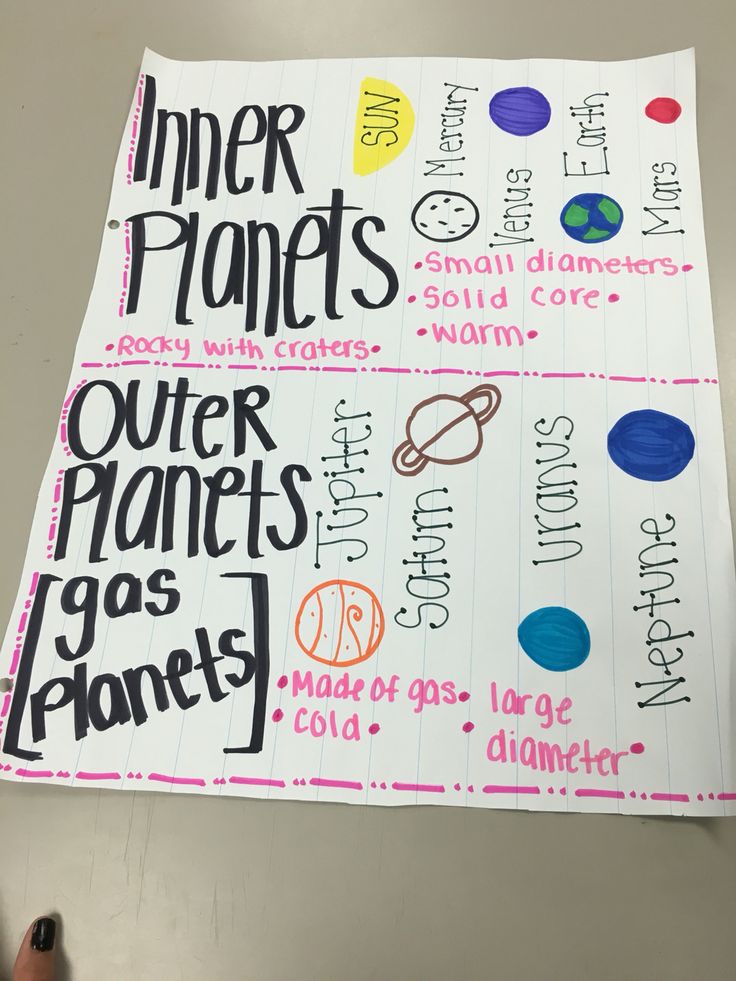 Inner
Planets
• Rocky with craters •
SUN
Mercury
Venus
Earth
Mars
• Small diameters •
• Solid core •
• warm •
Outer
Planets
[gas
planets]
Jupiter
Saturn
Uranus
Neptune
• Made of gas •
• cold •
• large
diameter •